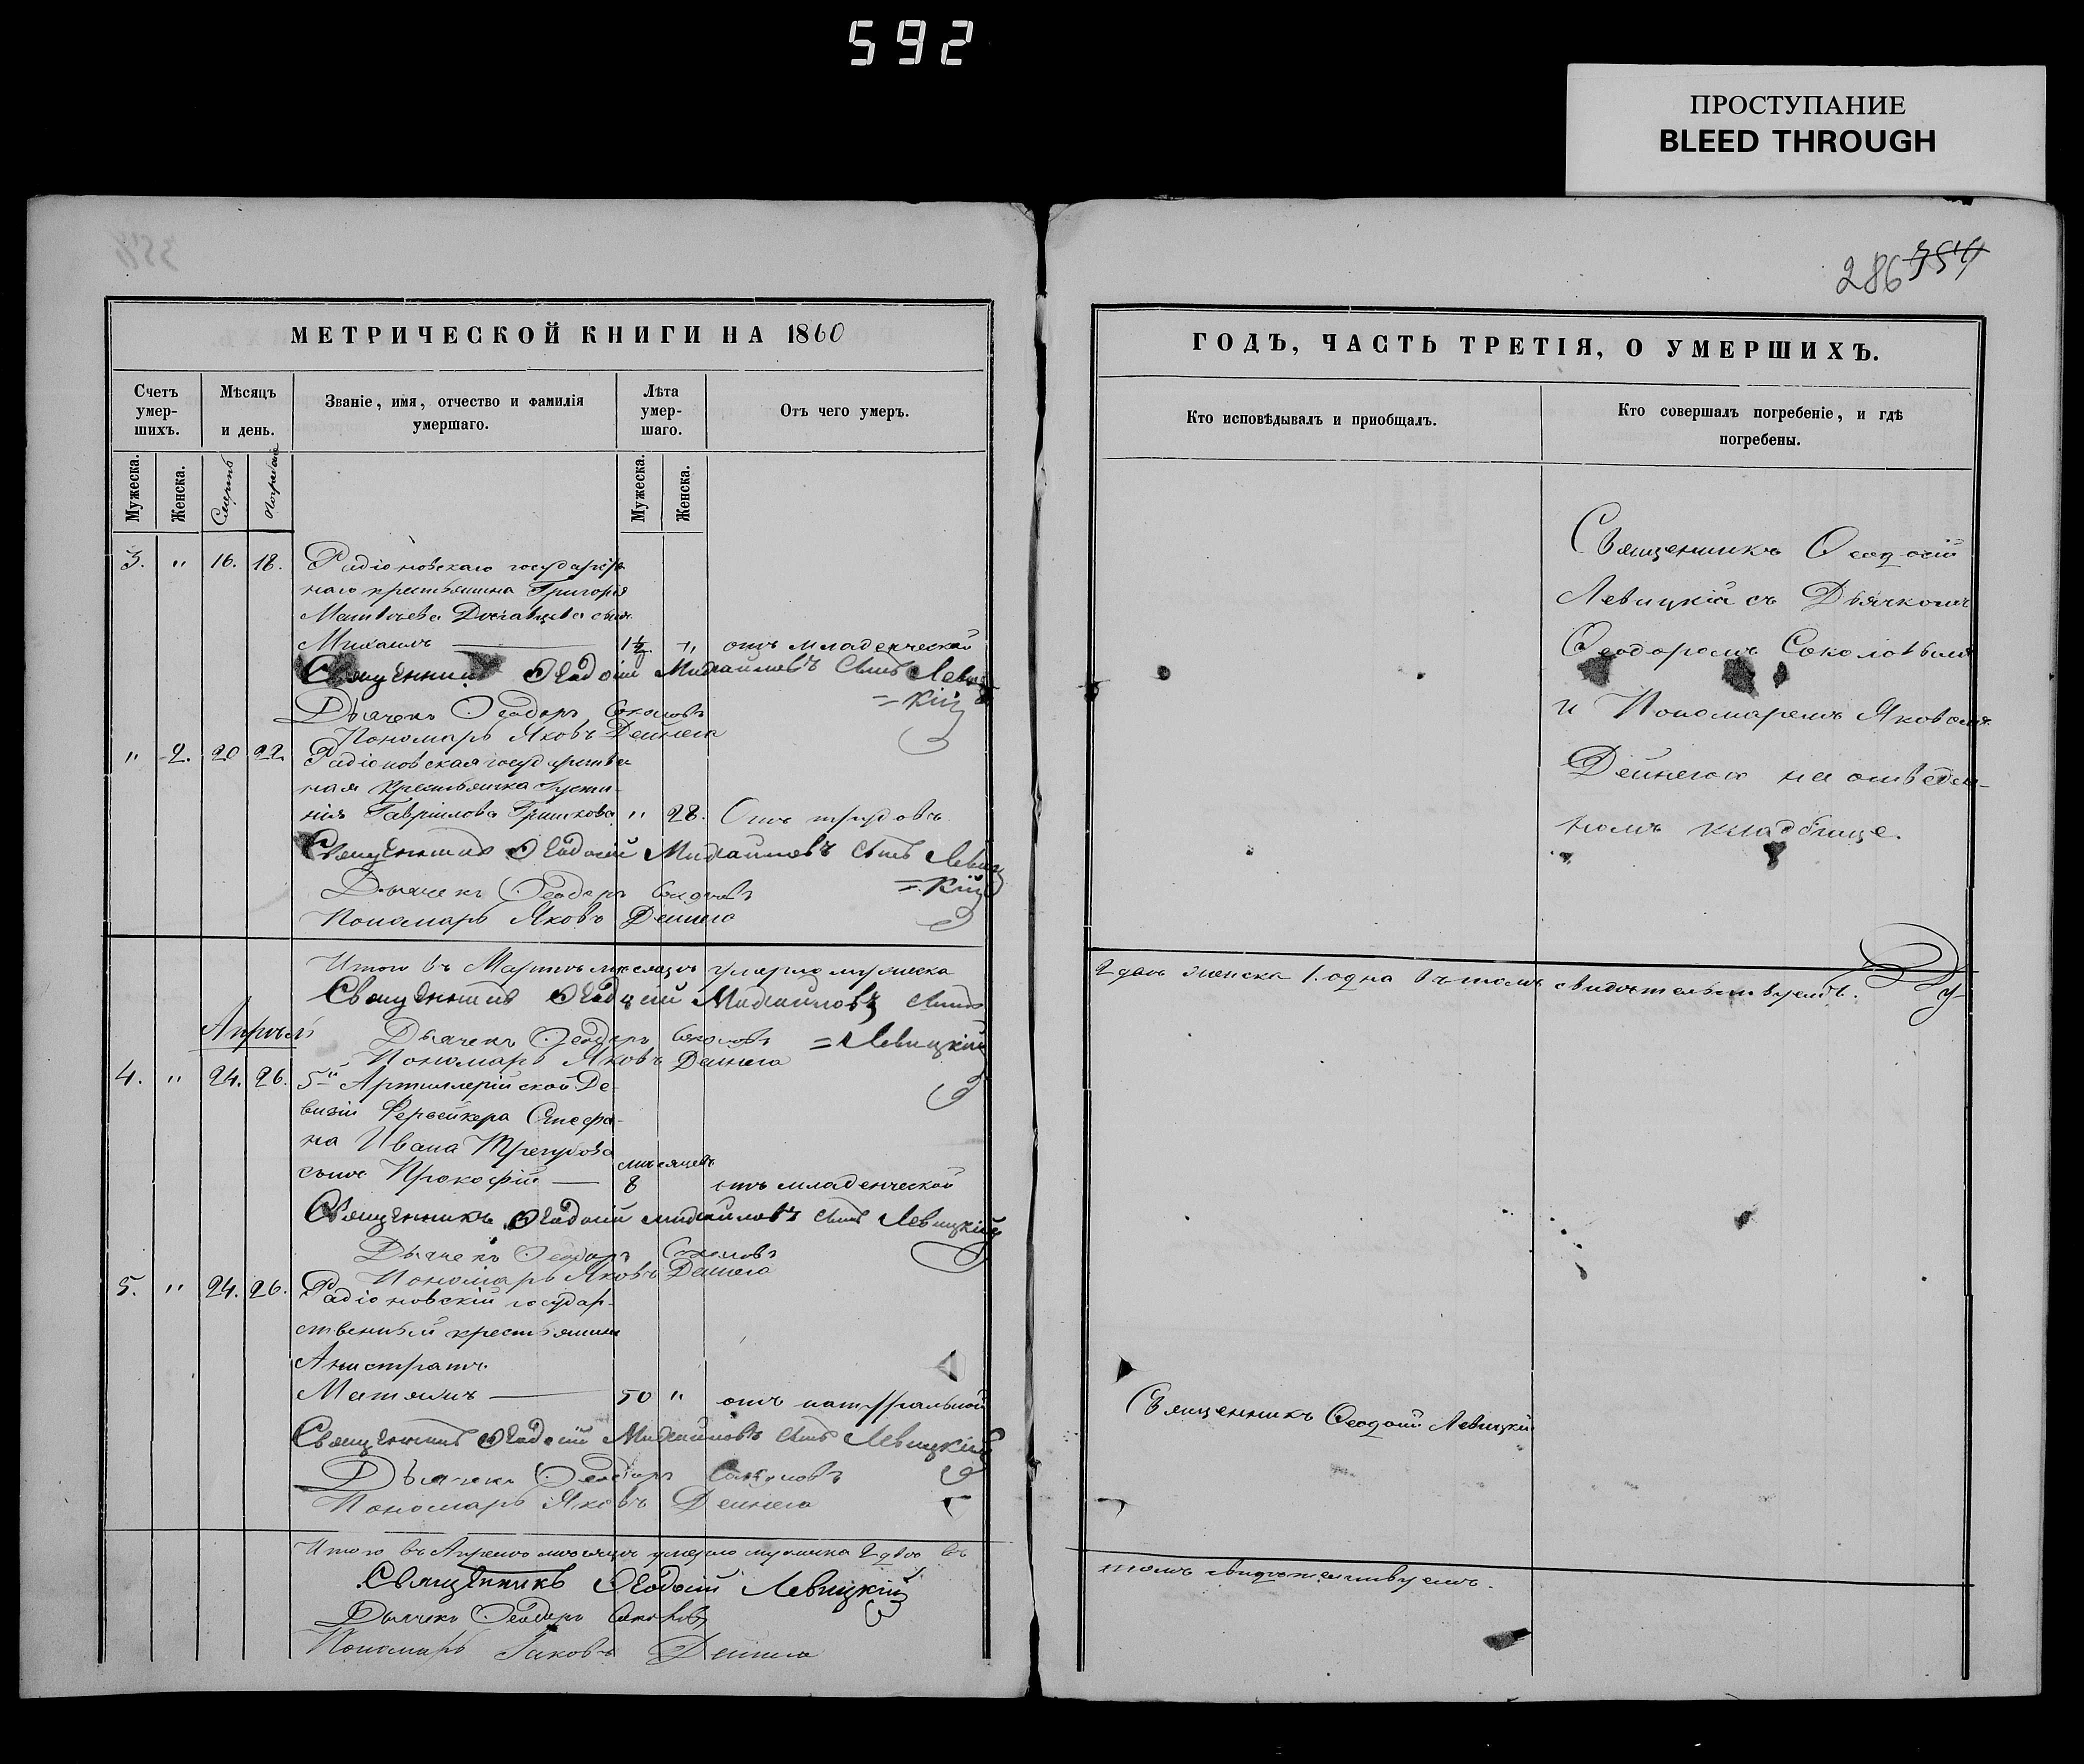 592
ПРОСТУПАНИЕ
BLEED THROUGH
286 354
МЕТРИЧЕСКОЙ КНИГИ НА 1860
Счетъ умер-шихъ.
Мѣсяцъ и день.
Званіе, имя, отчество и фамилія умершаго.
Лѣта умер-шаго.
Отъ чего умеръ.
Мужеска.
Женска.
Смерти
Погребенія
Мужеска.
Женска.
3. " 16. 18. Радіоновскаго государствен
наго крестьянина Григорія
Матвѣева сына
Михаилъ 1½. " отъ младенческой
Священникъ Ѳеодосій Михайловъ сынъ Левиц
=кій
Дьячекъ Ѳеодоръ Соколовъ
Пономарь Яковъ Дейнега
" 2. 20 22 Радіоновская государствен
ная крестьянка Густи-
нія Гаврилова Гришкова " 28. Отъ трудовъ.
Священникъ Ѳеодосій Михайловъ сынъ Левиц
=кій
Дьячекъ Ѳеодоръ Соколовъ
Пономарь Яковъ Дейнега
Итого въ Мартѣ мѣсяцѣ умерло мужеска
Священникъ Ѳеодосій Михайловъ сынъ
=Левицкій
Дьячекъ Ѳеодоръ Соколовъ
Апрѣль
Пономарь Яковъ Дейнега
4. " 24. 26. 5й Артиллерійской Де-
визіи Феервейкера Стефа-
на Ивана
сынъ Прокофій мѣсяцевъ 8 отъ младенческой
Священникъ Ѳеодосій Михайловъ сынъ Левицкій
Дьячекъ Ѳеодоръ Соколовъ
Пономарь Яковъ Дейнега
5. " 24. 26. Радіоновскій государ-
ственный крестьянинъ
Анистратъ
50 " отъ натуральной
Священникъ Ѳеодосій Михайловъ сынъ Левицкій
Дьячекъ Ѳеодоръ Соколовъ
Пономарь Яковъ Дейнега
Итого въ Апрѣлѣ мѣсяцѣ умерло мужеска 2 двое въ
Священникъ Ѳеодосій Левицкій
Дьячекъ Ѳеодоръ Соколовъ
Пономарь Іаковъ Дейнега
ГОДЪ, ЧАСТЬ ТРЕТІЯ, О УМЕРШИХЪ.
Кто исповѣдывалъ и приобщалъ.
Кто совершалъ погребеніе, и гдѣ погребены.
Священникъ Ѳеодосій
Левицкій съ Дьячкомъ
Ѳеодоромъ Соколовымъ
и Пономаремъ Яковомъ
Дейнегою на отведен-
номъ кладбище.
2 двое женска 1. одна въ томъ свидѣтельствуемъ.
Священникъ Ѳеодосій Левицкій
томъ свидѣтельствуемъ.